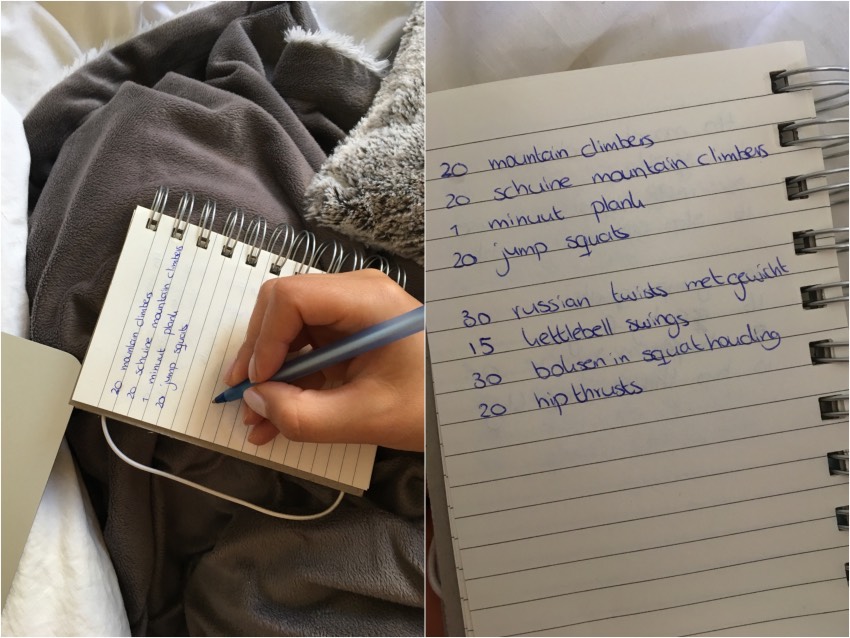 20 mountain climbers
20 schuine mountain climbers
1 minuut plank
20 jump squats
20 mountain climbers
20 schuine mountain climbers
1 minuut plank
20 jump squats
30 russian twists met gewicht
15 kettlebell swings
30 boksen in squat houding
20 hip thrusts